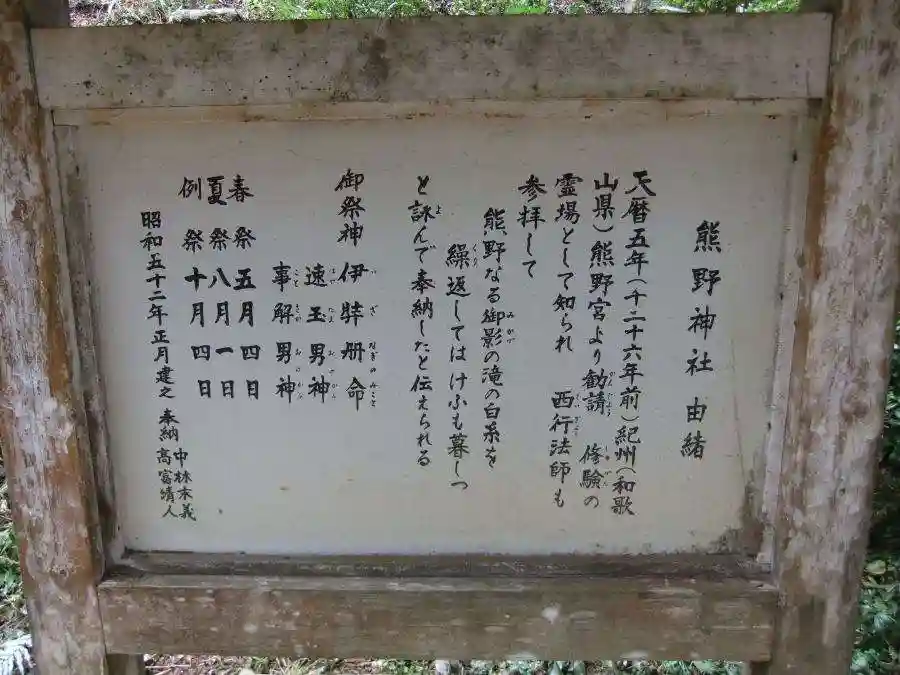 熊野神社由緒
天暦五年(千二十六年前)紀州(和歌
山県)熊野宮より勧請 修験の
霊場として知られ 西行法師も
参拝して
熊野なる御影の滝の白糸を
繰返してはけふも暮しつ
と詠んで奉納したと伝えられる
御祭神 伊弉册命
速玉男神
事解男神
春祭 五月四日
夏祭 八月一日
例祭 十月四日
昭和五十二年正月建之 奉納 中林木義
高富晴人